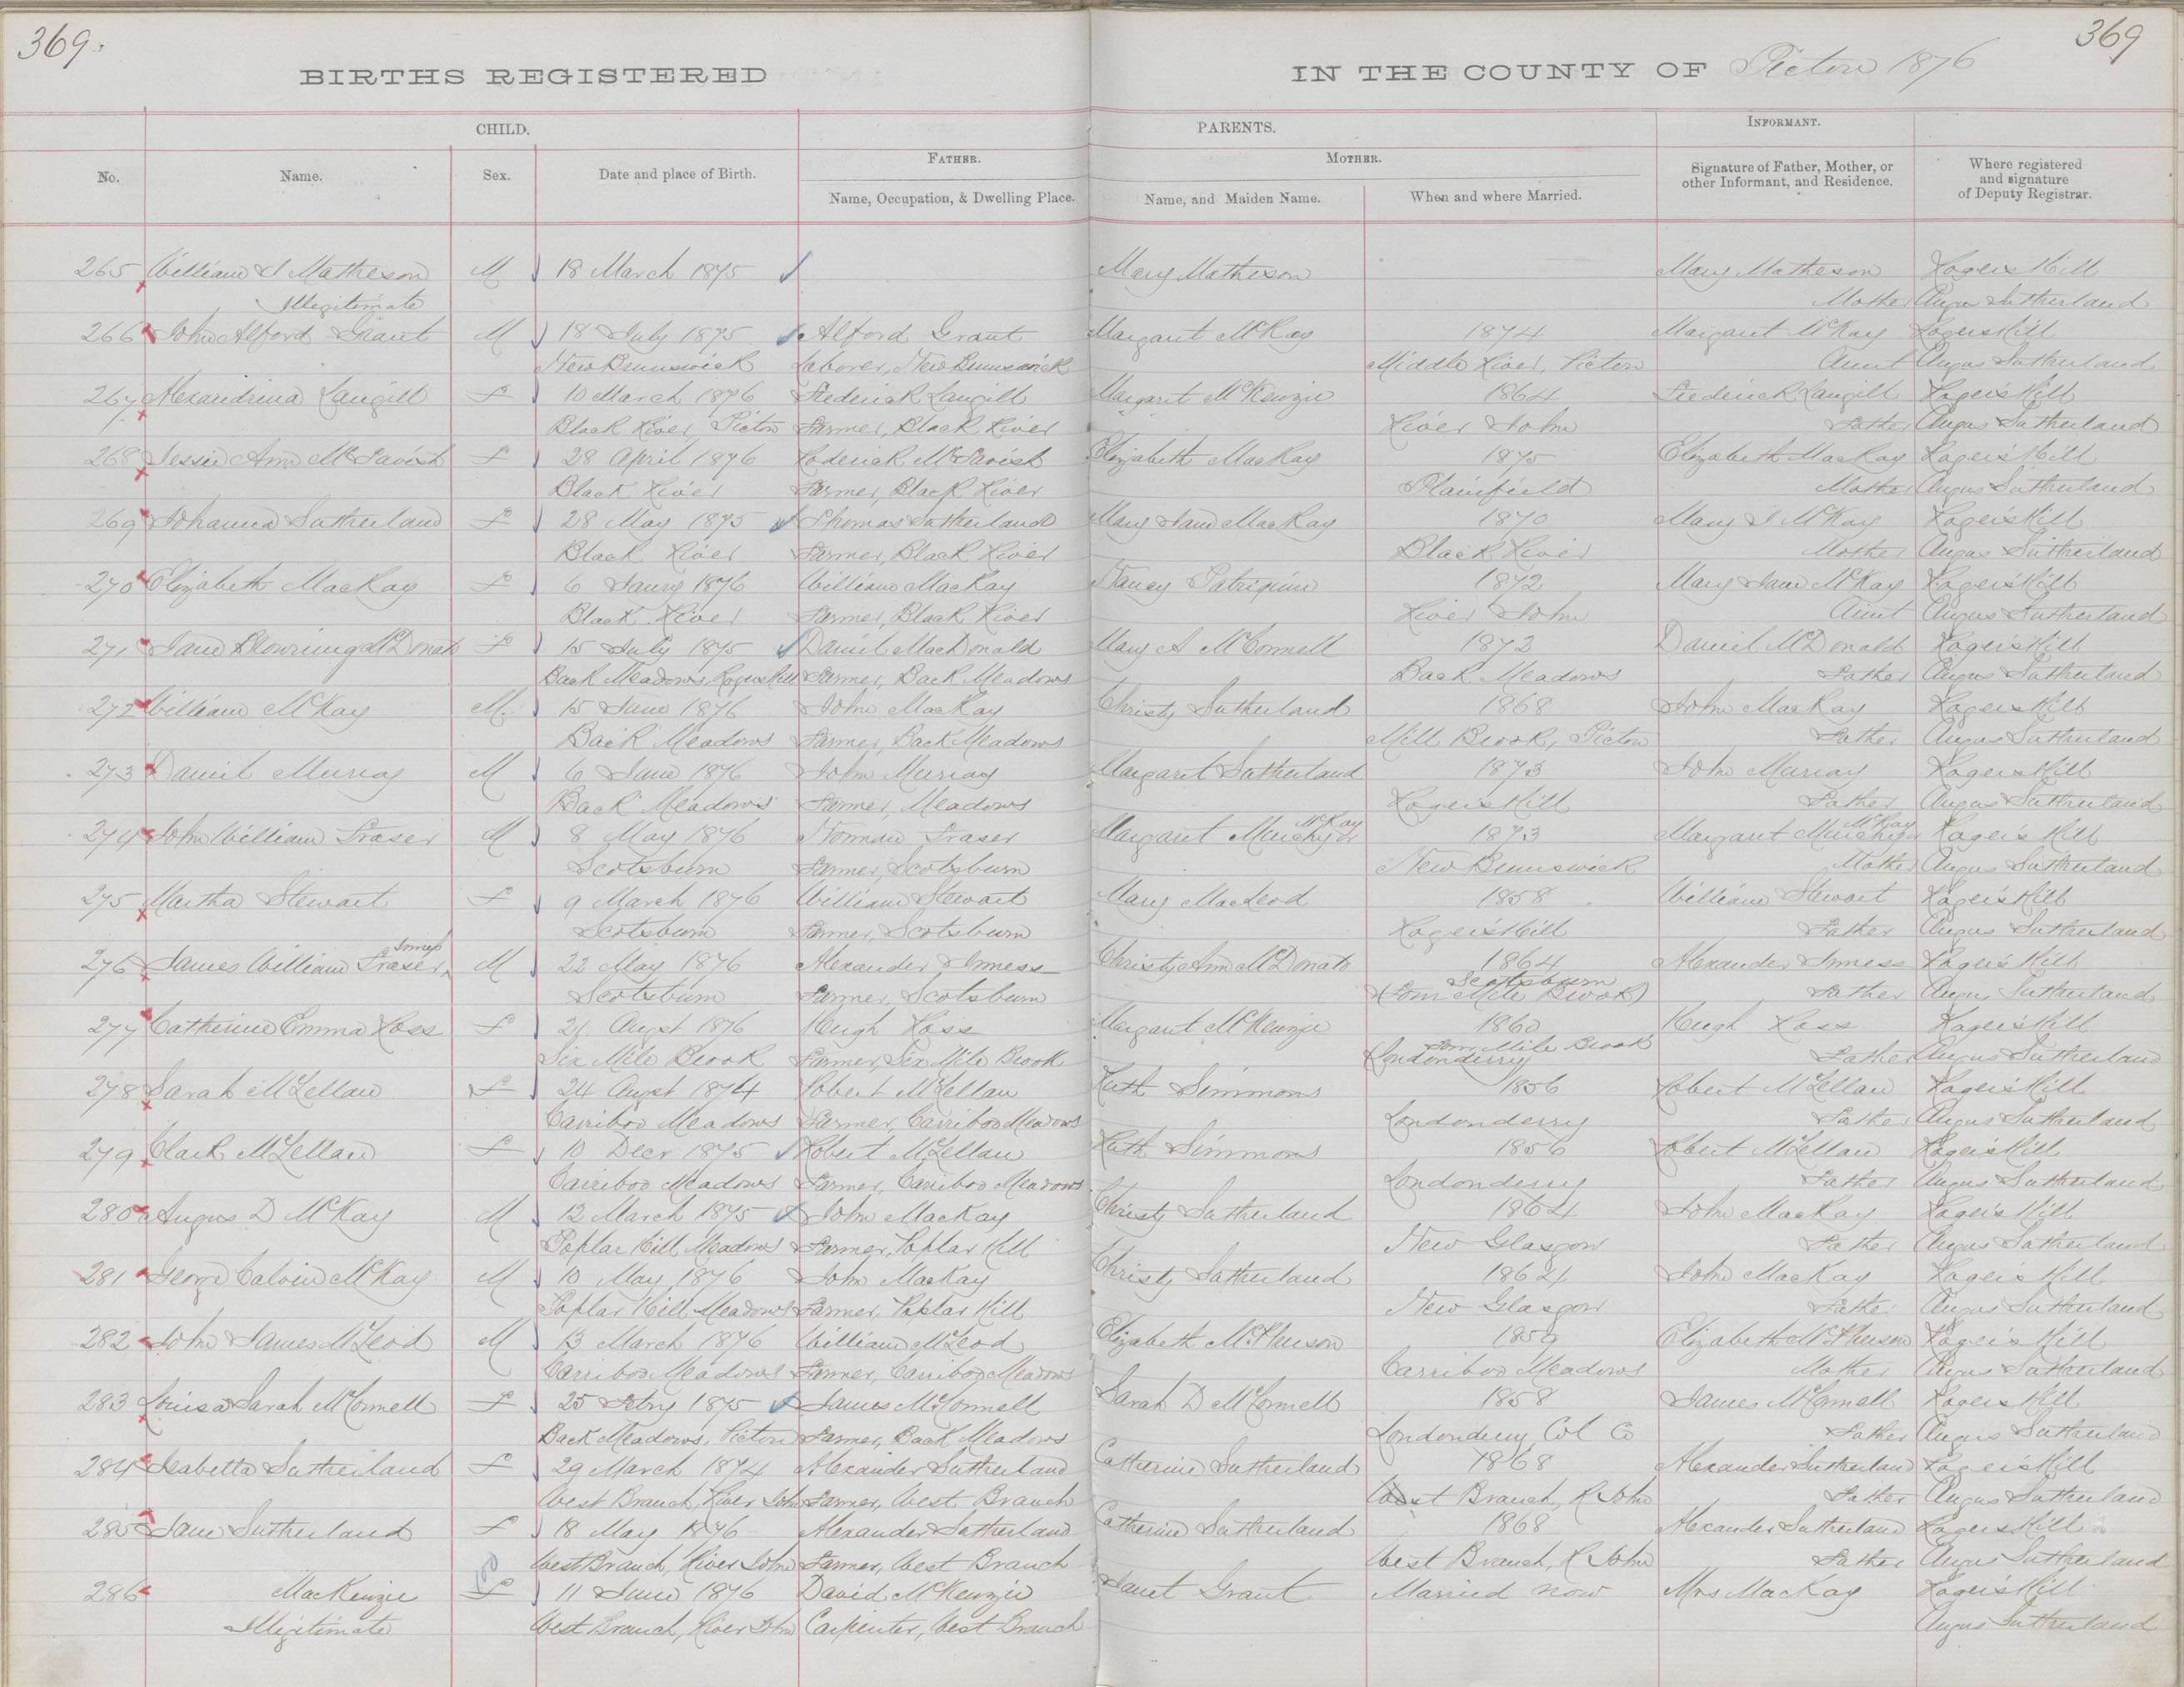 369.
369
BIRTHS REGISTERED IN THE COUNTY OF Pictou 1876
CHILD. PARENTS. INFORMANT.
No. Name. Sex. Date and place of Birth. FATHER. MOTHER. Signature of Father, Mother, or other Informant, and Residence. Where registered and signature of Deputy Registrar.
Name, Occupation, & Dwelling Place. Name, and Maiden Name. When and where Married.
265 William J Matheson M 18 March 1875 Mary Matheson Mary Matheson Rogers Hill
Illegitimate Mother Angus Sutherland
266 John Alford Grant M 18 July 1875 Alford Grant Margaret McKay 1874 Margaret McKay Rogers Hill
New Brunswick Laborer, New Brunswick Middle River, Pictou Aunt Angus Sutherland
267 Alexandrina Langill F 10 March 1876 Frederick Langill Margaret McKenzie 1864 Frederick Langill Rogers Hill
Black River, Pictou Farmer, Black River River John Father Angus Sutherland
268 Jessie Ann McTavish F 28 April 1876 Roderick McTavish Elizabeth MacKay 1875 Elizabeth MacKay Rogers Hill
Black River Farmer, Black River Plainfield Mother Angus Sutherland
269 Johanna Sutherland F 28 May 1875 Thomas Sutherland Mary Jane MacKay 1870 Mary J McKay Rogers Hill
Black River Farmer, Black River Black River Mother Angus Sutherland
270 Elizabeth MacKay F 6 Jany 1876 William MacKay Nancy Patriquin 1872 Mary Jane McKay Rogers Hill
Black River Farmer, Black River River John Aunt Angus Sutherland
271 Jane McDonald F 15 July 1875 Daniel MacDonald Mary A McConnell 1873 Daniel McDonald Rogers Hill
Back Meadows, Rogers Hill Farmer, Back Meadows Back Meadows Father Angus Sutherland
272 William McKay M. 15 June 1876 John MacKay Christy Sutherland 1868 John MacKay Rogers Hill
Back Meadows Farmer, Back Meadows Mill Brook, Pictou Father Angus Sutherland
273 Daniel Murray M 6 June 1876 John Murray Margaret Sutherland 1873 John Murray Rogers Hill
Back Meadows Farmer, Meadows Rogers Hill Father Angus Sutherland
274 John William Fraser M 8 May 1876 Norman Fraser Margaret McKay or 1873 Margaret McKay Rogers Hill
Scotsburn Farmer, Scotsburn New Brunswick Mother Angus Sutherland
275 Martha Stewart F 9 March 1876 William Stewart Mary MacLeod 1858 William Stewart Rogers Hill
Scotsburn Farmer, Scotsburn Rogers Hill Father Angus Sutherland
Inness
276 James William Fraser M 22 May 1876 Alexander Inness Christy Ann McDonald 1864 Alexander Inness Rogers Hill
Scotsburn Farmer, Scotsburn Scottsburn (Four Mile Brook) Father Angus Sutherland
277 Catherine Emma Ross F 21 Augst 1876 Hugh Ross Margaret McKenzie 1860 Hugh Ross Rogers Hill
Six Mile Brook Farmer, Six Mile Brook Four Mile Brook Londonderry Father Angus Sutherland
278 Sarah McLellan F 24 Augst 1874 Robert McLellan Ruth Simmons 1856 Robert McLellan Rogers Hill
Carriboo Meadows Farmer, Carriboo Meadows Londonderry Father Angus Sutherland
279 Clark McLellan F 10 Decr 1875 Robert McLellan Ruth Simmons 1856 Robert McLellan Rogers Hill
Carriboo Meadows Farmer, Carriboo Meadows Londonderry Father Angus Sutherland
280 Angus D McKay M 12 March 1875 John MacKay Christy Sutherland 1864 John MacKay Rogers Hill
Poplar Hill Meadows Farmer, Poplar Hill New Glasgow Father Angus Sutherland
281 George Calvin McKay M 10 May 1876 John MacKay Christy Sutherland 1864 John MacKay Rogers Hill
Poplar Hill Meadows Farmer, Poplar Hill New Glasgow Father Angus Sutherland
282 John James McLeod M 13 March 1876 William McLeod Elizabeth McPherson 1859 Elizabeth McPherson Rogers Hill
Carriboo Meadows Farmer, Carriboo Meadows Carriboo Meadows Mother Angus Sutherland
283 Louisa Sarah McConnell F 25 Febry 1875 James McConnell Sarah D McConnell 1858 James McConnell Rogers Hill
Back Meadows, Pictou Farmer, Back Meadows Londonderry Col Co Father Angus Sutherland
284 Isabella Sutherland F 29 March 1874 Alexander Sutherland Catherine Sutherland 1868 Alexander Sutherland Rogers Hill
West Branch, River John Farmer, West Branch West Branch, R John Father Angus Sutherland
285 Jane Sutherland F 18 May 1876 Alexander Sutherland Catherine Sutherland 1868 Alexander Sutherland Rogers Hill
West Branch, River John Farmer, West Branch West Branch, R John Father Angus Sutherland
286 MacKenzie F 11 June 1876 David McKenzie Janet Grant Married now Mrs MacKay Rogers Hill
Illigitimate West Branch, River John Carpenter, West Branch Angus Sutherland